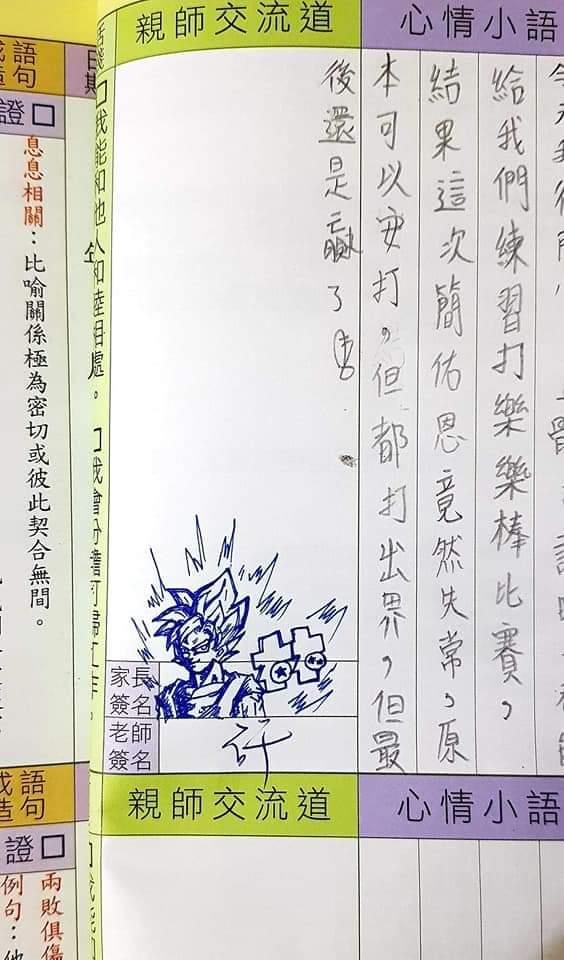 親師交流道
心情小語
給我們練習打樂樂棒比賽，
結果這次簡佑恩竟然失常，原
本可以安打，但都打出界，但最
後還是贏了
家長
簽名
老師
簽名
許
□我能和他人和睦相處。□我會分擔打掃工作。
親師交流道
心情小語
日期
語
句
證□
息息相關：比喻關係極為密切或彼此契合無間。
語
造句
證□
兩敗俱傷
例句：他